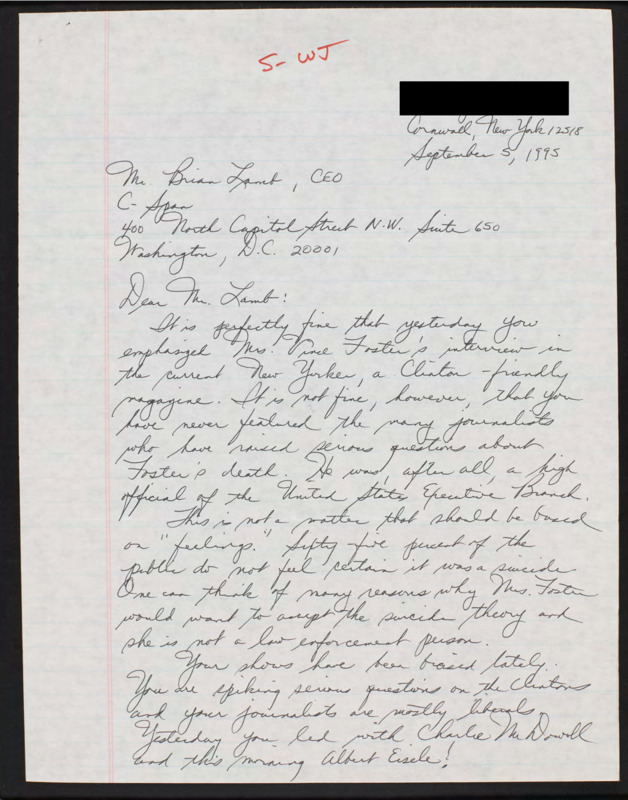 S- WJ
Cornwall, New York 12518
September 5, 1995
Mr. Brian Lamb, CEO
C-Span
400 North Capitol Street N.W. Suite 650
Washington, D.C. 20001
Dear Mr. Lamb:
It is perfectly fine that yesterday you
emphasized Mrs. Vince Foster's interview in
the current New Yorker, a Clinton-friendly
magazine. It is not fine, however, that you
have never featured the many journalists
who have raised serious questions about
Foster's death. He was, after all, a high
official of the United States Executive Branch.
This is not a matter that should be based
on "feelings." Sixty five percent of the
public do not feel certain it was a suicide.
One can think of many reasons why Mrs. Foster
would want to accept the suicide theory and
she is not a law enforcement person.
Your shows have been biased lately.
You are spiking serious questions on the Clintons
and your journalists are mostly liberals.
Yesterday you led with Charlie McDowell
and this morning Albert Eisele!